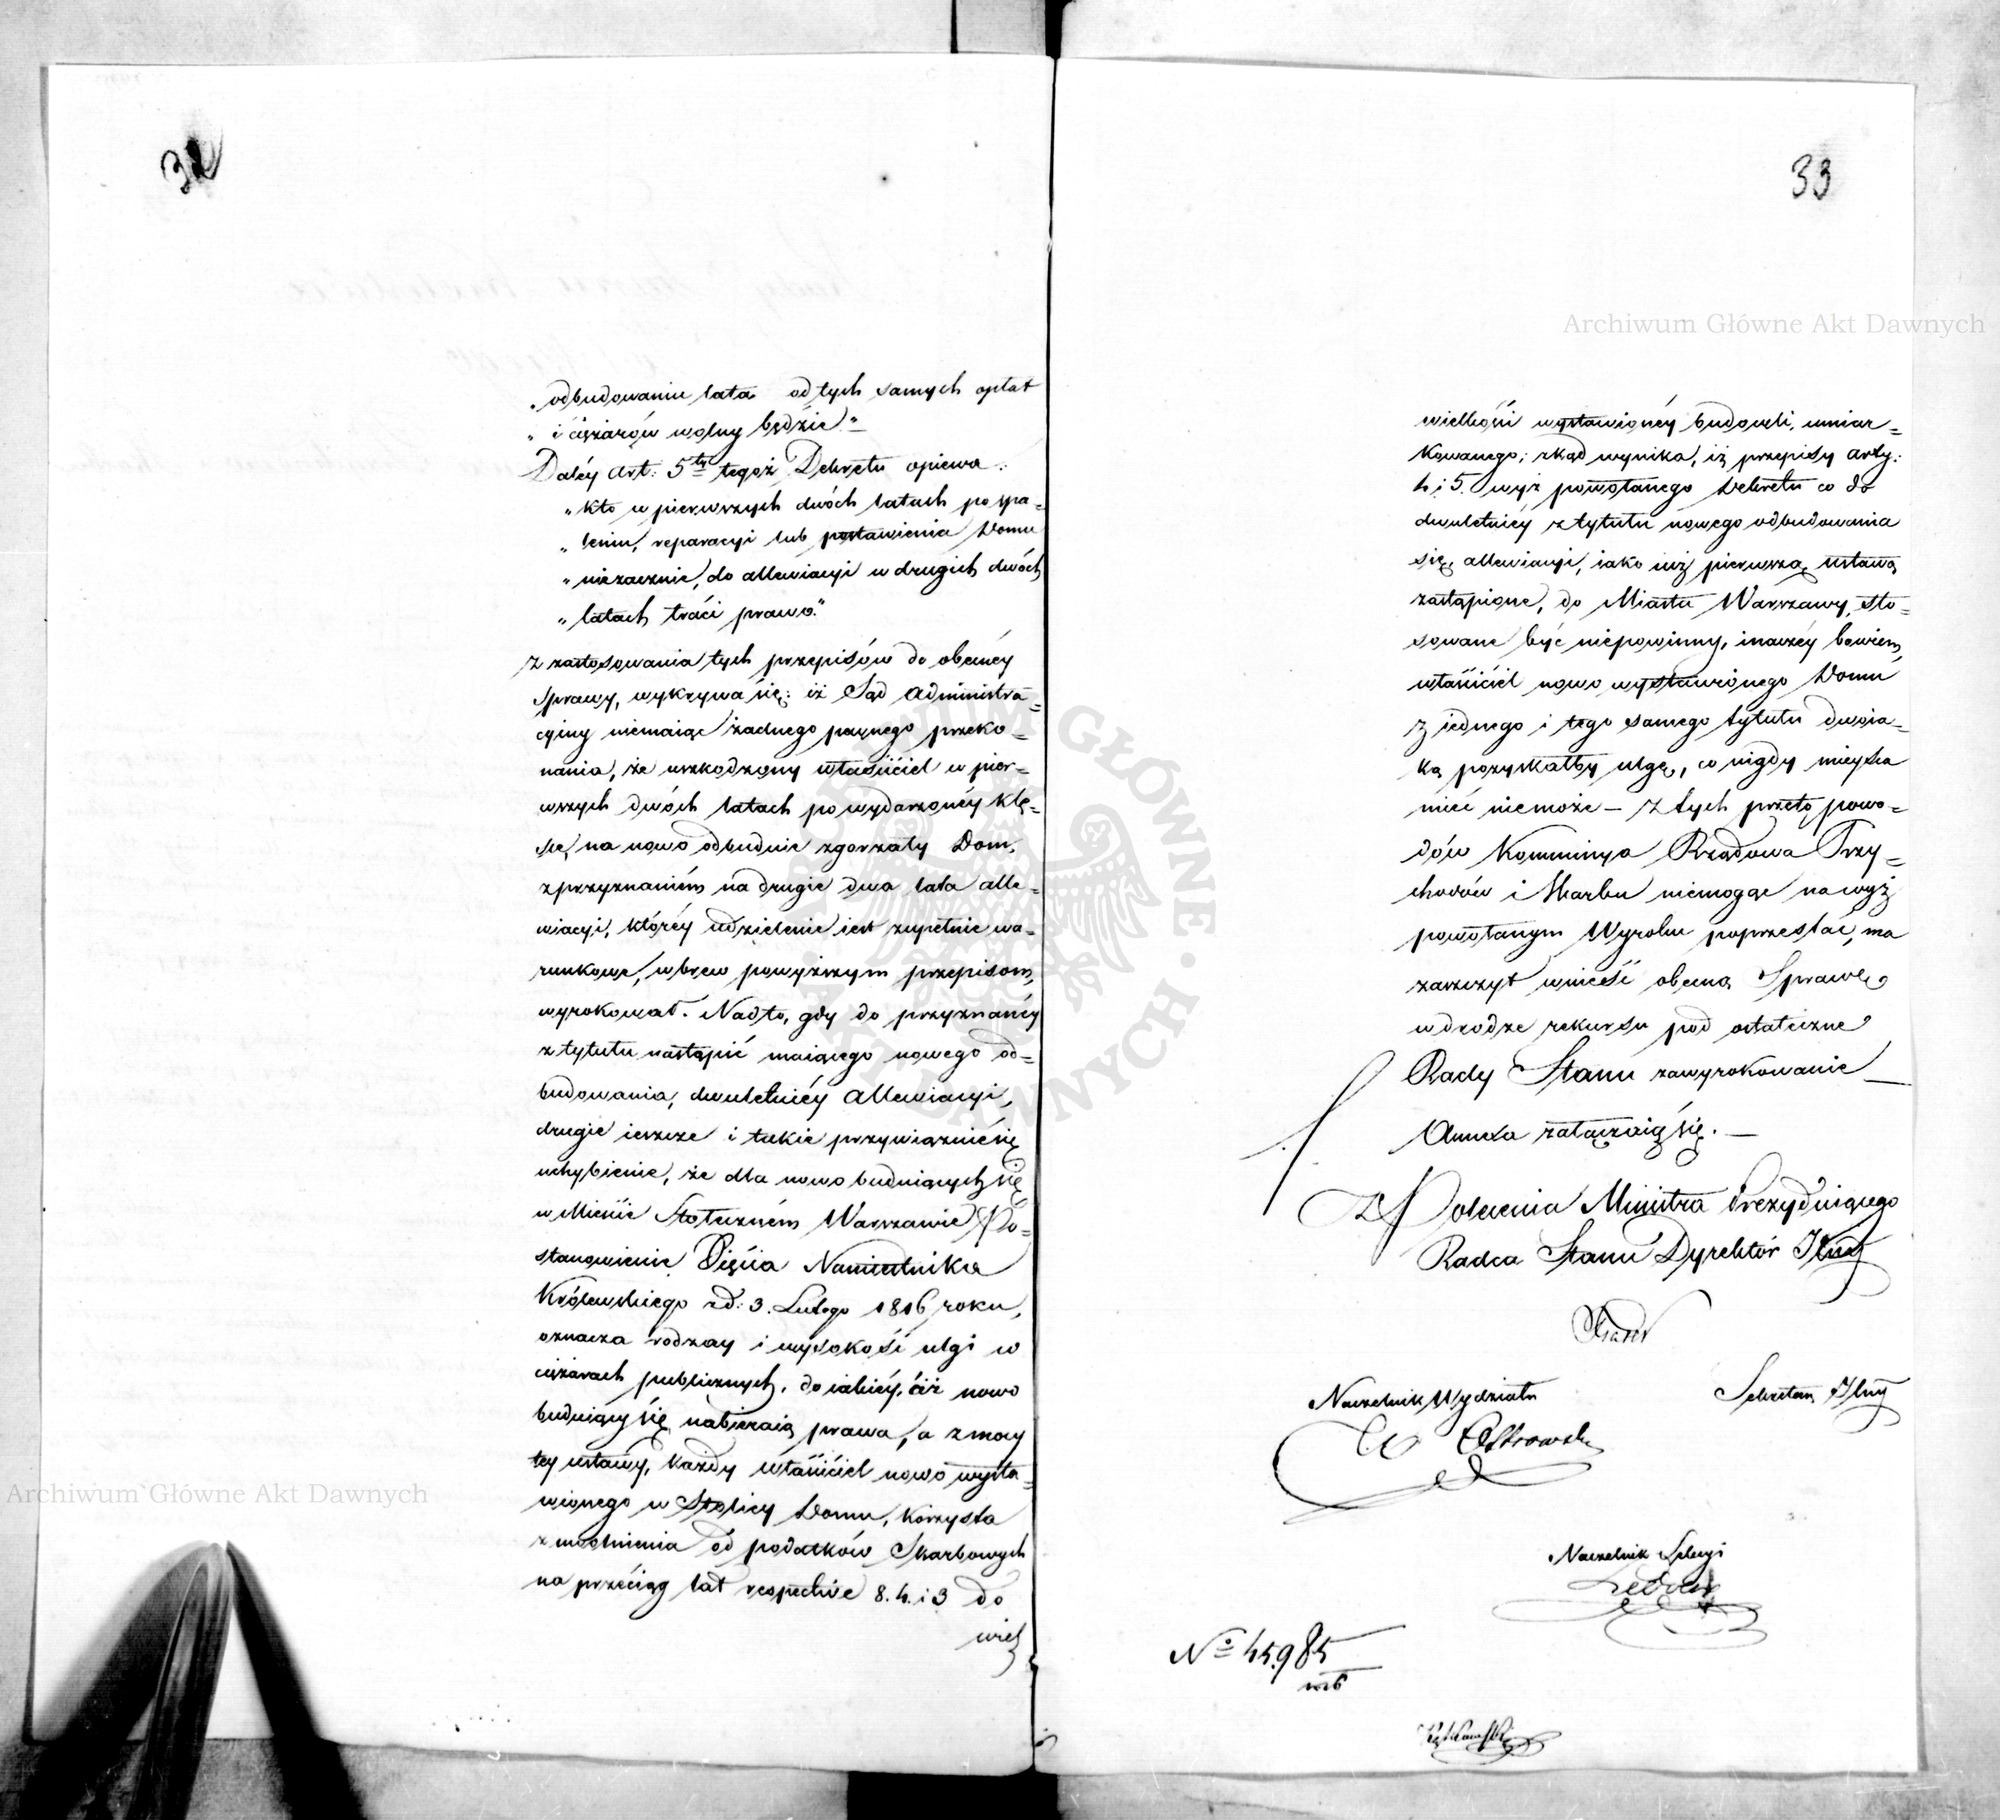 32
„odbudowaniu lata od tych samych opłat
„i ciężarów wolny będzie"=
Daléy Art: 5ty tegoż Dekretu opiewa:
„kto w pierwszych dwóch latach po spa=
„leniu, reparacyi lub postawienia Domu
„niezacznie, do allewiacyi w drugich dwóch
„latach traći prawo."
Z zastosowania tych przepisów do obecnéy
sprawy, wykrywa się: iż Sąd Administra=
cyiny niemaiąc żadnego pewnego przeko=
nania, że uszkodzony właśiciel w pier=
wszych dwóch latach po wydarzonéy klę=
sce, na nowo odbuduie zgorzały Dom,
z przyznaniem na drugie dwa lata alle=
wiacyi, któréy udzielenie iest zupełnie wa=
runkowe, wbrew powyższym przepisom,
wyrokował. Nadto, gdy do przyznanéy
z tytułu nastąpić maiącego nowego od=
budowania, dwuletniéy Allewiacyi,
drugie ieszcze i takie przywiązuie się
uchybienie, że dla nowo buduiących się
w Mieśćie Stołeczném Warszawie Po=
stanowienie Xięćia Namiestnika
Królewskiego z d: 3. Lutego 1816 roku,
oznacza rodzay i wysokość ulgi w
ciężarach publicznych, do iakiéy, ciż nowo
buduiący się nabieraią prawa, a z mocy
tey ustawy, każdy właśćiciel nowo wysta=
wionego w Stolicy Domu, korzysta
z uwolnienia od podatków Skarbowych
na przećiąg lat respective 8. 4. i 3 do
wiel
33
Archiwum Główne Akt Dawnych
wielkośći wystawionéy budowli, umiar=
kowanego; zkąd wynika, iż przepisy Arty:
4 i 5. wyż powołanego Dekretu co do
dwuletniéy z tytułu nowego odbudowania
się, allewiacyi, iako iuż pierwszą ustawą
zastąpione, do Miasta Warszawy, sto=
sowane być niepowinny, inaczéy bowiem
właśćiciel nowo wystawionego Domu
z iednego i tego samego tytułu dwoia=
ką pozyskałby ulgę, co nigdy mieysca
mieć niemoże – Z tych przeto powo=
dów Kommissya Rządowa Przy=
chodów i Skarbu niemogąc na wyż
powołanym Wyroku poprzestać, ma
zaszczyt wnieść obecną Sprawę
w drodze rekursu pod ostateczne
Rady Stanu zawyrokowanie –
Annexa załączaią się. –
Z Polecenia Ministra Prezyduiącego
Radca Stanu Dyrektór Jlny
Naczelnik Wydziału
Sekretarz Jlny
Ostrowski
Naczelnik Sekcyi
No 45,985
Archiwum Główne Akt Dawnych
ARCHIWUM GŁÓWNE · AKT DAWNYCH ·